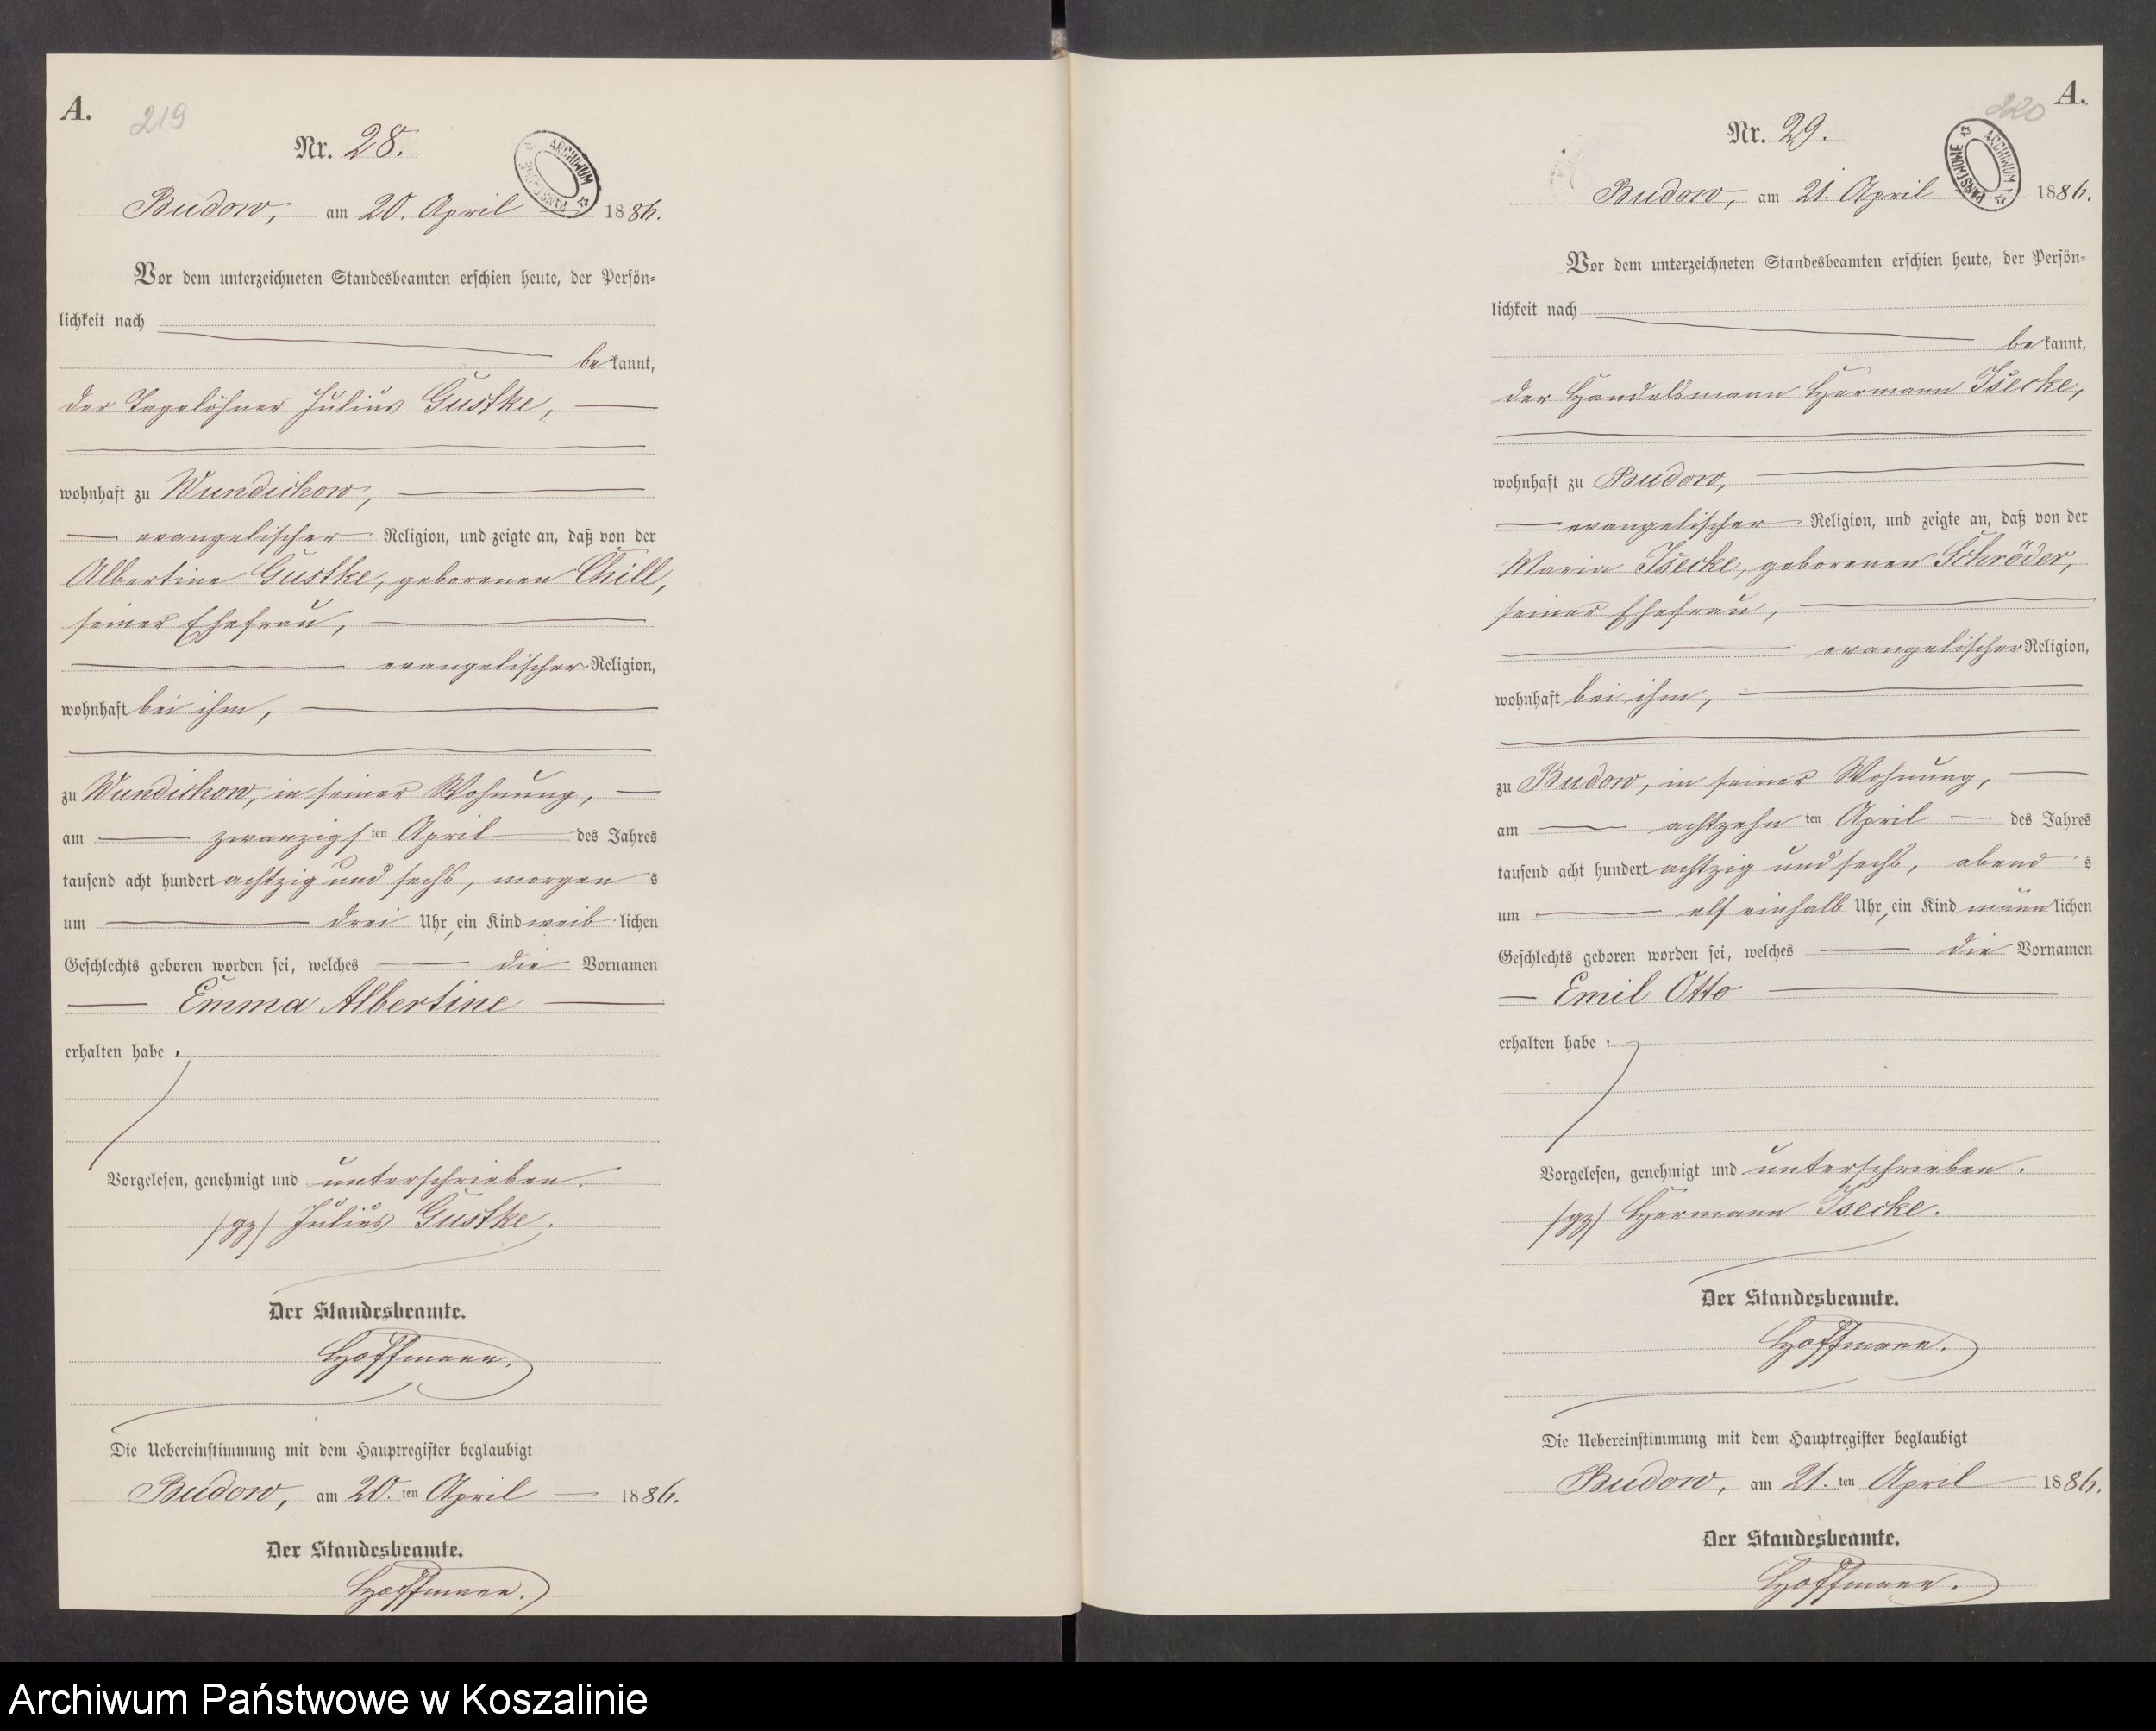 A.
219
Nr. 28.
ARCHIWUM PAŃSTWOWE
Budow, am 20. April 1886.
Vor dem unterzeichneten Standesbeamten erschien heute, der Persön-
lichkeit nach
be kannt,
der Tagelöhner Julius Gustke,
wohnhaft zu Wundichow,
evangelischer Religion, und zeigte an, daß von der
Albertine Gustke, geborenen Chill,
seiner Ehefrau,
evangelischer Religion,
wohnhaft bei ihm,
zu Wundichow, in seiner Wohnung,
am zwanzigs ten April des Jahres
tausend acht hundert achtzig und sechs, morgen s
um drei Uhr, ein Kind weib lichen
Geschlechts geboren worden sei, welches die Vornamen
Emma Albertine
erhalten habe.
Vorgelesen, genehmigt und unterschrieben.
/gz/ Julius Gustke.
Der Standesbeamte.
Hoffmann.
Die Uebereinstimmung mit dem Hauptregister beglaubigt
Budow, am 20. ten April 1886.
Der Standesbeamte.
Hoffmann.
A.
220
Nr. 29.
ARCHIWUM PAŃSTWOWE
Budow, am 21. April 1886.
Vor dem unterzeichneten Standesbeamten erschien heute, der Persön-
lichkeit nach
be kannt,
der Handelsmann Hermann Isecke,
wohnhaft zu Budow,
evangelischer Religion, und zeigte an, daß von der
Maria Isecke, geborenen Schröder,
seiner Ehefrau,
evangelischer Religion,
wohnhaft bei ihm,
zu Budow, in seiner Wohnung,
am achtzehn ten April des Jahres
tausend acht hundert achtzig und sechs, abend s
um elf einhalb Uhr, ein Kind männ lichen
Geschlechts geboren worden sei, welches die Vornamen
Emil Otto
erhalten habe.
Vorgelesen, genehmigt und unterschrieben.
/gz/ Hermann Isecke.
Der Standesbeamte.
Hoffmann.
Die Uebereinstimmung mit dem Hauptregister beglaubigt
Budow, am 21. ten April 1886.
Der Standesbeamte.
Hoffmann.
Archiwum Państwowe w Koszalinie